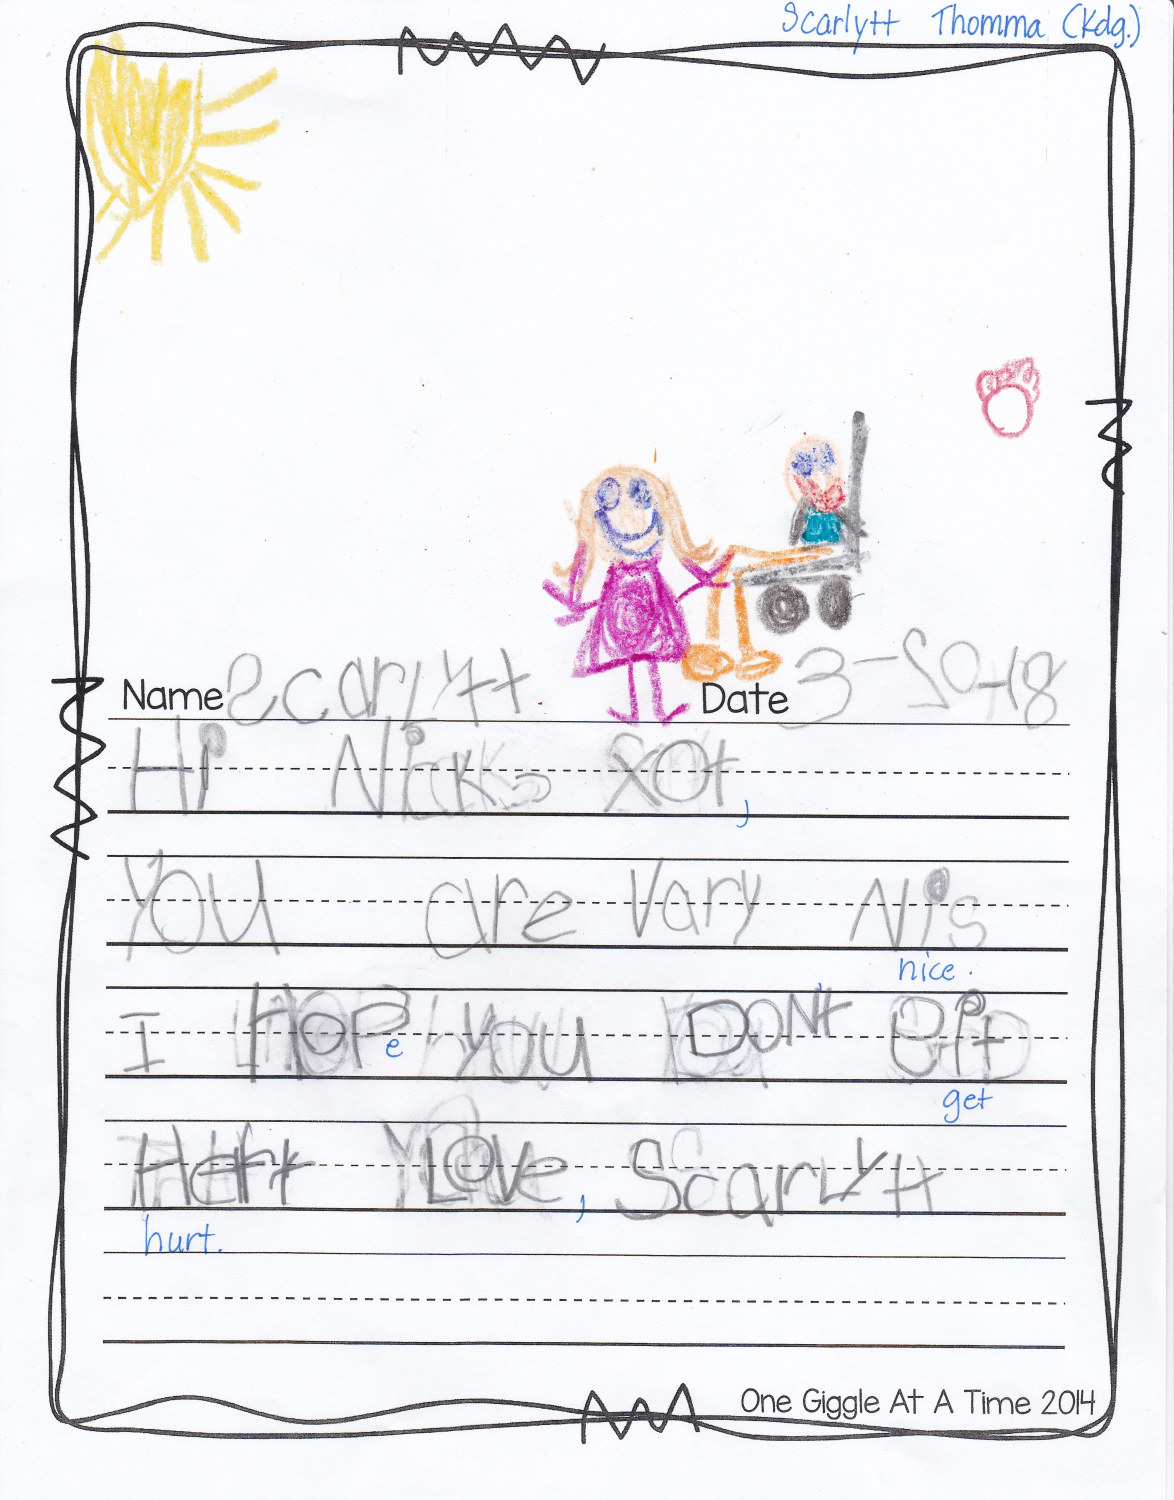 Scarlytt Thomma (Kdg.)
Name Scarlytt Date 3-20-18
Hi Nicks xot,
You are vary Nis
nice.
I HOPe You DON't git
get
Hart Love, Scarlytt
hurt.
One Giggle At A Time 2014